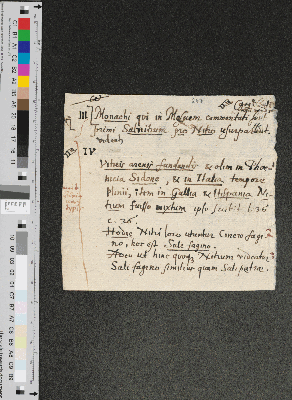 III Monachi qui in Mesuem commentati sunt
primi Salnitrum pro Nitro usurpasse
videntur
IV
Vitris arenis fundendis & olim in Phoe-
nicia Sidone, & in Italia tempore
Plinii, item in Gallia & Hispania Ni-
trum fuisse mixtum ipse scribit l. 36
c. 26.
Hodie Nitri loco utuntur Cinere fagi-
no, hoc est Sale fagino.
Adeo ut hinc quoque Nitrum videatur
Sali fagino similius quam Sali petrae.